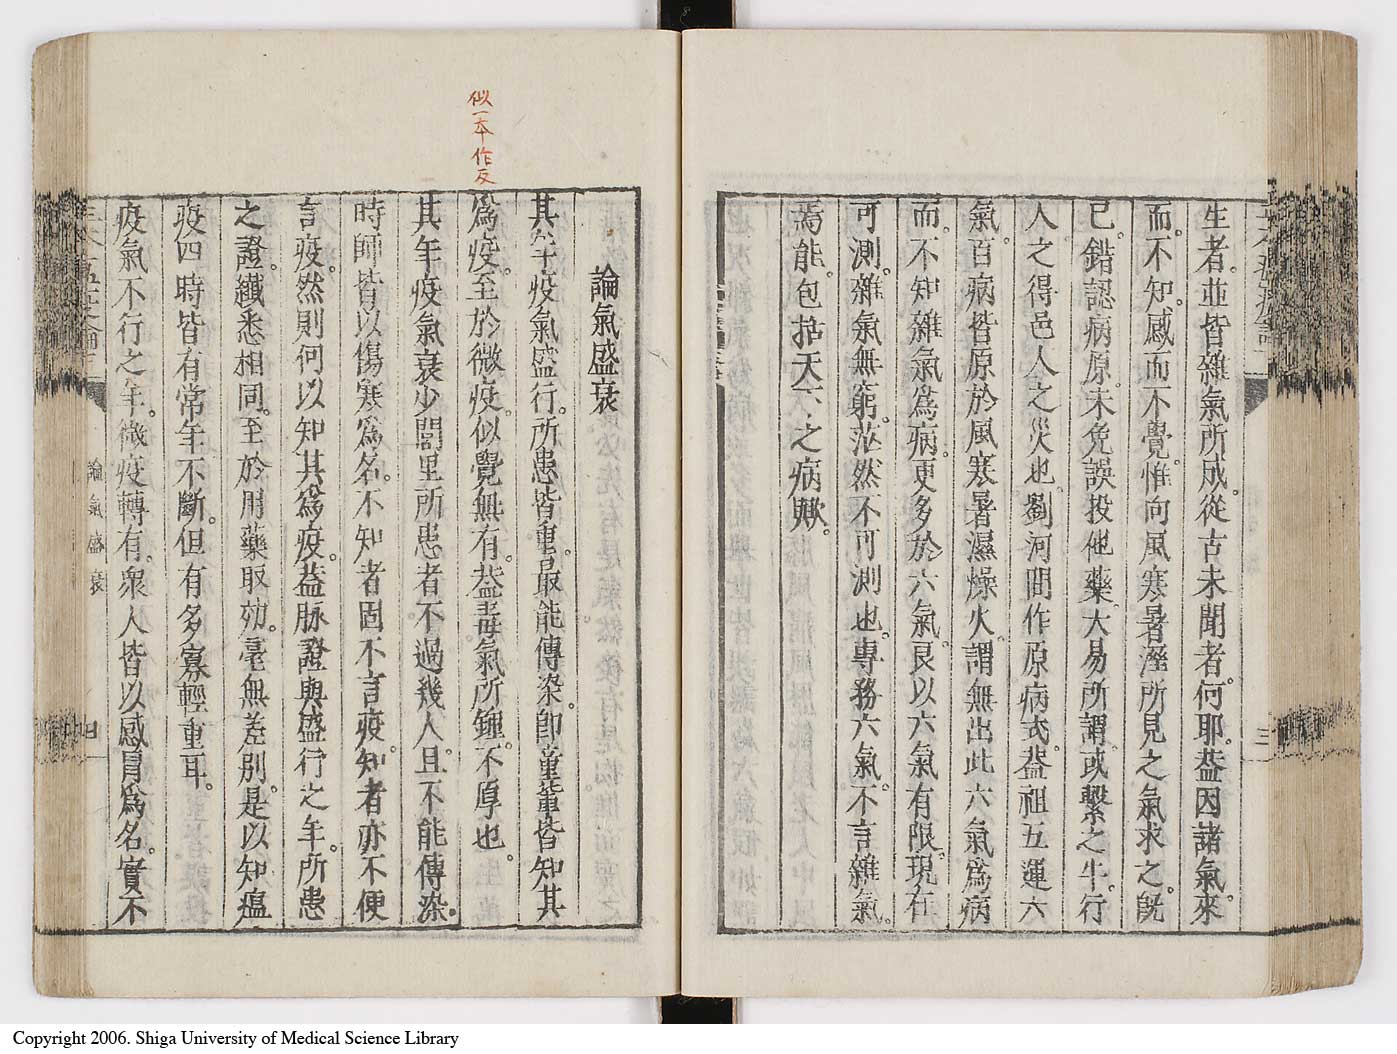 生者。並皆雜氣所成。從古未聞者。何耶。葢因諸氣來
而。不知。感而不覺。惟向風寒暑溼所見之氣求之。旣
已錯認病原。未免誤投他藥。大易所謂。或繫之牛。行
人之得。邑人之災也。劉河間作原病式。葢祖五運六
氣。百病皆原於風寒暑濕燥火。謂無出此六氣爲病
而。不知雜氣爲病。更多於六氣。良以六氣有限。現在
可測。雜氣無窮。茫然不可測也。專務六氣。不言雜氣。
焉能包括天下之病歟。
三
似一本作反
論氣盛衰
其年疫氣盛行。所患皆重。最能傳染。卽童輩皆知其
爲疫。至於微疫。似覺無有。葢毒氣所鍾。不厚也。
其年疫氣衰少。閭里所患者不過幾人。且不能傳染。
時師皆以傷寒爲名。不知者固不言疫。知者亦不便
言疫。然則何以知其爲疫。葢脉證與盛行之年。所患
之證。纖悉相同。至於用藥取効。毫無差別。是以知瘟
疫四時皆有常年不斷。但有多寡輕重耳。
疫氣不行之年。微疫轉有。衆人皆以感冒爲名。實不
論氣盛衰